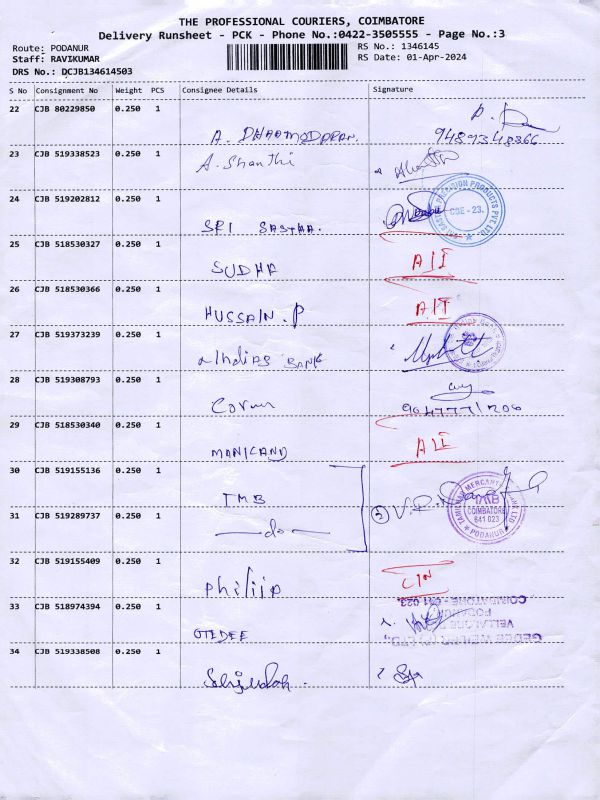 THE PROFESSIONAL COURIERS, COIMBATORE
Delivery Runsheet - PCK - Phone No.:0422-3505555 - Page No.:3
Route: PODANUR
Staff: RAVIKUMAR
DRS No.: DCJB134614503
RS No.: 1346145
RS Date: 01-Apr-2024
S No Consignment No Weight PCS Consignee Details Signature
22 CJB 80229850 0.250 1
A. DHARMODARAN.
9489348366
23 CJB 519338523 0.250 1
A. Shanthi
24 CJB 519202812 0.250 1
SRI SASTHA.
CBE - 23.
PRECISION PRODUCTS PVT. LTD.
25 CJB 518530327 0.250 1
SUDHA
26 CJB 518530366 0.250 1
HUSSAIN. P
27 CJB 519373239 0.250 1
Indian BANK
28 CJB 519308793 0.250 1
29 CJB 518530340 0.250 1
MANICAND
30 CJB 519155136 0.250 1
TMB
TAMILNAD MERCANTILE BANK LTD
TMB
COIMBATORE
641 023
PODANUR
31 CJB 519289737 0.250 1
-do-
32 CJB 519155409 0.250 1
Philip
33 CJB 518974394 0.250 1
GEDEE
COIMBATORE - 641 023.
PODANUR
34 CJB 519338508 0.250 1